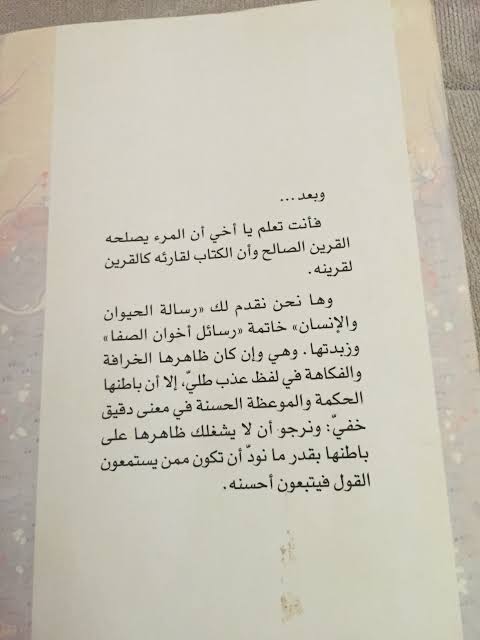 وبعد...
فأنت تعلم يا أخي أن المرء يصلحه
القرين الصالح وأن الكتاب لقارئه كالقرين
لقرينه.
وها نحن نقدم لك «رسالة الحيوان
والإنسان» خاتمة «رسائل أخوان الصفا»
وزبدتها. وهي وإن كان ظاهرها الخرافة
والفكاهة في لفظ عذب طليّ، إلا أن باطنها
الحكمة والموعظة الحسنة في معنى دقيق
خفيّ: ونرجو أن لا يشغلك ظاهرها على
باطنها بقدر ما نودّ أن تكون ممن يستمعون
القول فيتبعون أحسنه.